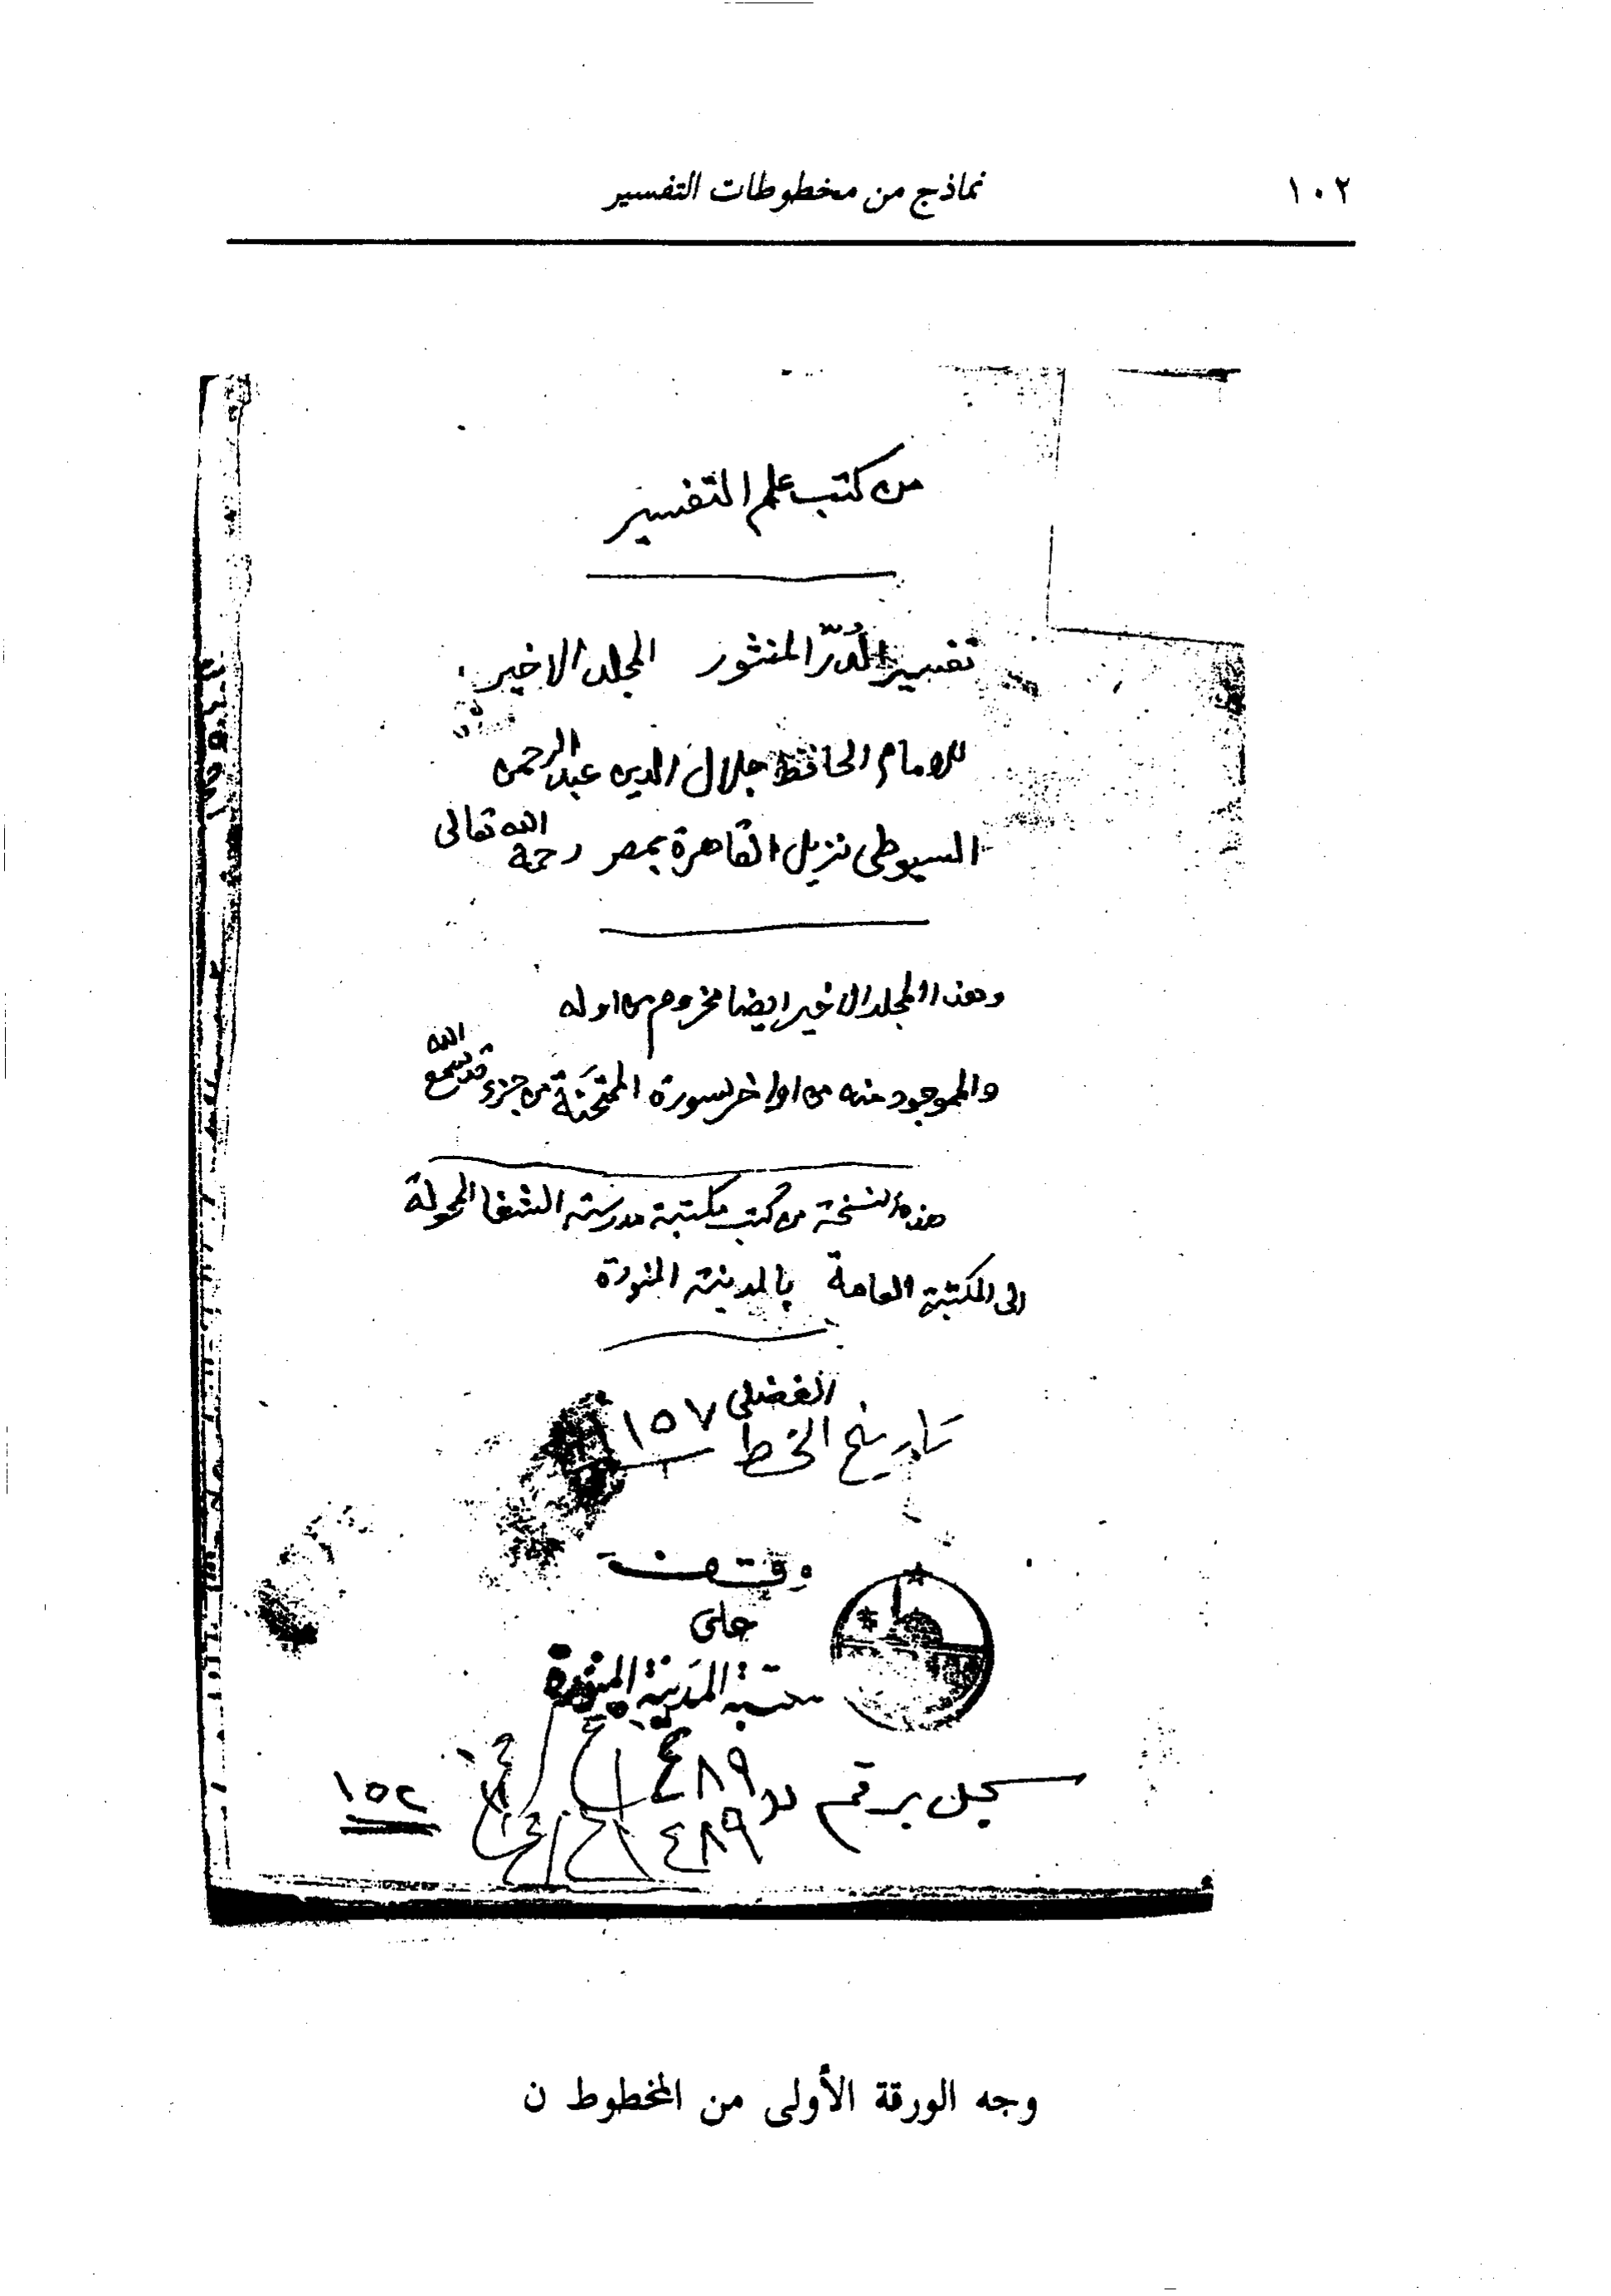 ١٠٢
نماذج من مخطوطات التفسير
من كتب علم التفسير
تفسير الدُرّ المنثور المجلد الاخير
للامام الحافظ جلال الدين عبد الرحمن
السيوطى نزيل القاهرة بمصر رحمه الله تعالى
وهذا المجلد الاخير ايضا مخروم من اوله
والموجود منه من اواخر سورة الممتحنة من جزء قد سمع الله
هذه النسخة من كتب مكتبة مدرسة الشفا المحولة
الى المكتبة العامة بالمدينة المنورة
الفضلى
تاريخ الخط ١٥٧
وقف
على
مكتبة المدينة المنورة
سجل برقم ٤٨٩
٤٨٩
١٥٢
وجه الورقة الأولى من المخطوط ن